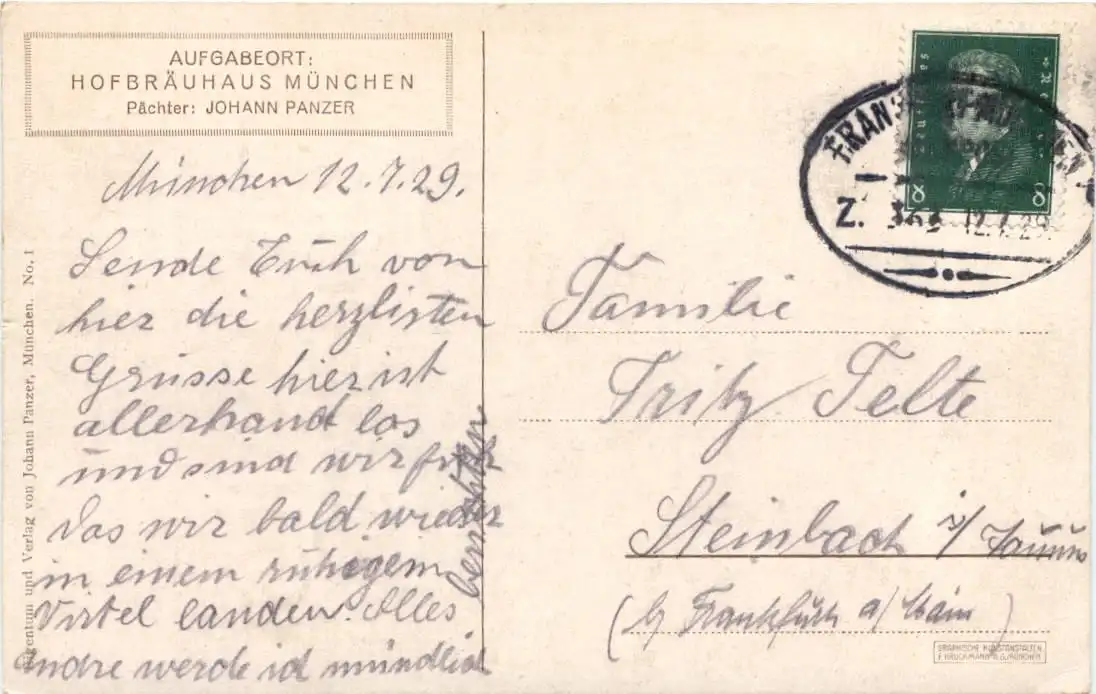 AUFGABEORT:
HOFBRÄUHAUS MÜNCHEN
Pächter: JOHANN PANZER
München 12.7.29.
Sende Euch von
hier die herzlisten
Grüsse hier ist
allerhand los
und sind wir froh
das wir bald wieder
in einem ruhigem
Virtel landen. Alles
andre werde ich mündlich
berichten
Eigentum und Verlag von Johann Panzer, München. No. 1
Deutsches Reich
8 8
Z. 363 12.7.29
Familie
Fritz Felte
Steinbach i/Taunus
(by Frankfurh a/Main)
GRAPHISCHE KUNSTANSTALTEN
F. BRUCKMANN A.G./MÜNCHEN